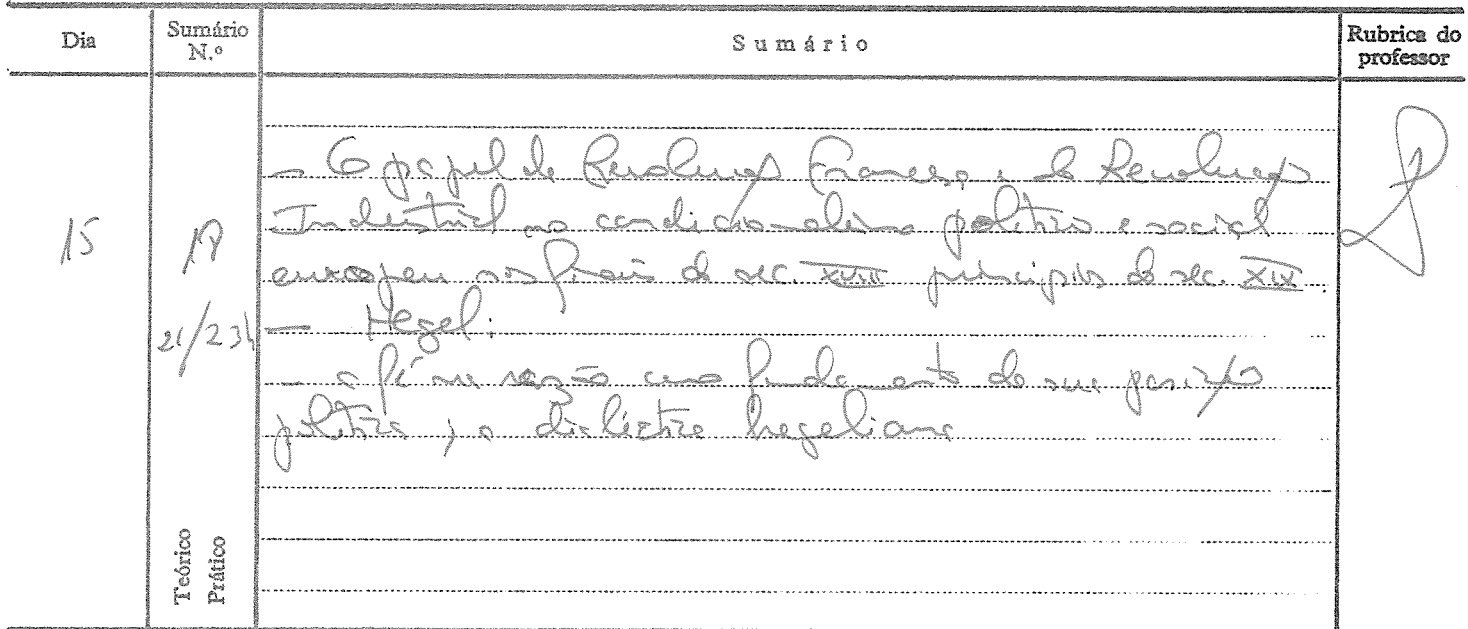 Dia
Sumário N.º
Sumário
Rubrica do professor
15
21/23h
- O papel da Revolução Francesa e da Revolução
Industrial no condicionalismo político e social
europeu nos finais do séc. XVIII princípios do séc. XIX
- Hegel:
- a fé na razão como fundamento da sua posição
política; a dialéctica hegeliana
Teórico
Prático